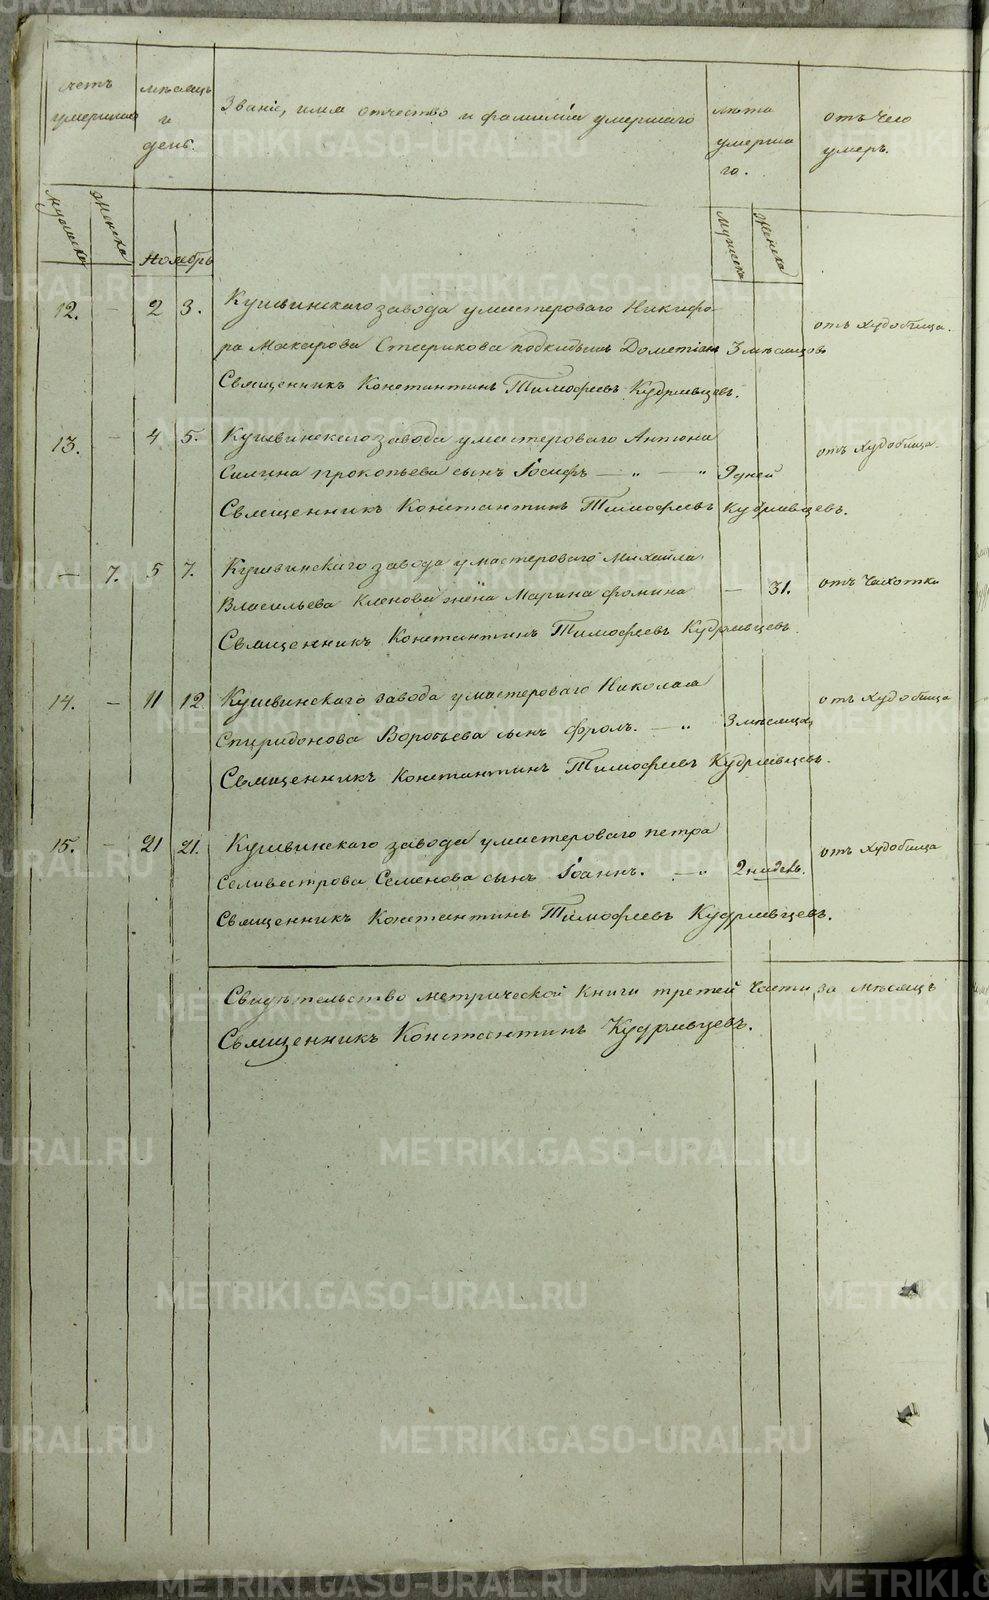 счетъ
умершихъ
мѣсяцъ
и
день.
Званіе, имя отчество и фамиліа умершаго
лѣта
умерша
го.
отъ чего
умеръ.
мужеска
женска
Ноябрь
мужеска
женска
12. – 2 3. Кушвинскаго завода у мастероваго Никифо
ра Макарова Старикова подкидышъ Дометіан 3 мѣсяцовъ отъ худобища.
Священникъ Константинъ Тимофеевъ Кудрявцевъ.
13. – 4 5. Кушвинскаго завода у мастероваго Антона
Силина прокопьева сынъ Іосифъ — „ — „ 9 дней отъ худобища.
Священникъ Константинъ Тимофеевъ Кудрявцевъ.
— 7. 5 7. Кушвинскаго завода у мастероваго Михайла
Власильева Кленова жена Марина фомина — 31. отъ чахотки
Священникъ Константинъ Тимофеевъ Кудрявцевъ.
14. – 11 12. Кушвинскаго завода у мастероваго Николая
Спиридонова Воробьева сынъ фролъ. — „ 3 мѣсяца отъ худобища
Священникъ Константинъ Тимофеевъ Кудрявцевъ.
15. – 21 21. Кушвинскаго завода у мастероваго петра
Селивестрова Семенова сынъ Іоаннъ. — „ 2 недель. отъ худобища
Священникъ Константинъ Тимофеевъ Кудрявцевъ.
Свидѣтельство метрической книги третей части за мѣсяцъ
Священникъ Константинъ Кудрявцевъ.
METRIKI.GASO-URAL.RU